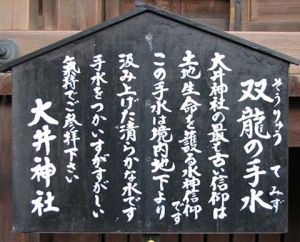 双龍の手水
そうりゅう てみず
大井神社の最も古い信仰は
土地生命を護る水神信仰
です
この手水は境内地下より
汲み上げた清らかな水です
手水をつかいすがすがしい
氣持でご参拝下さい
大井神社